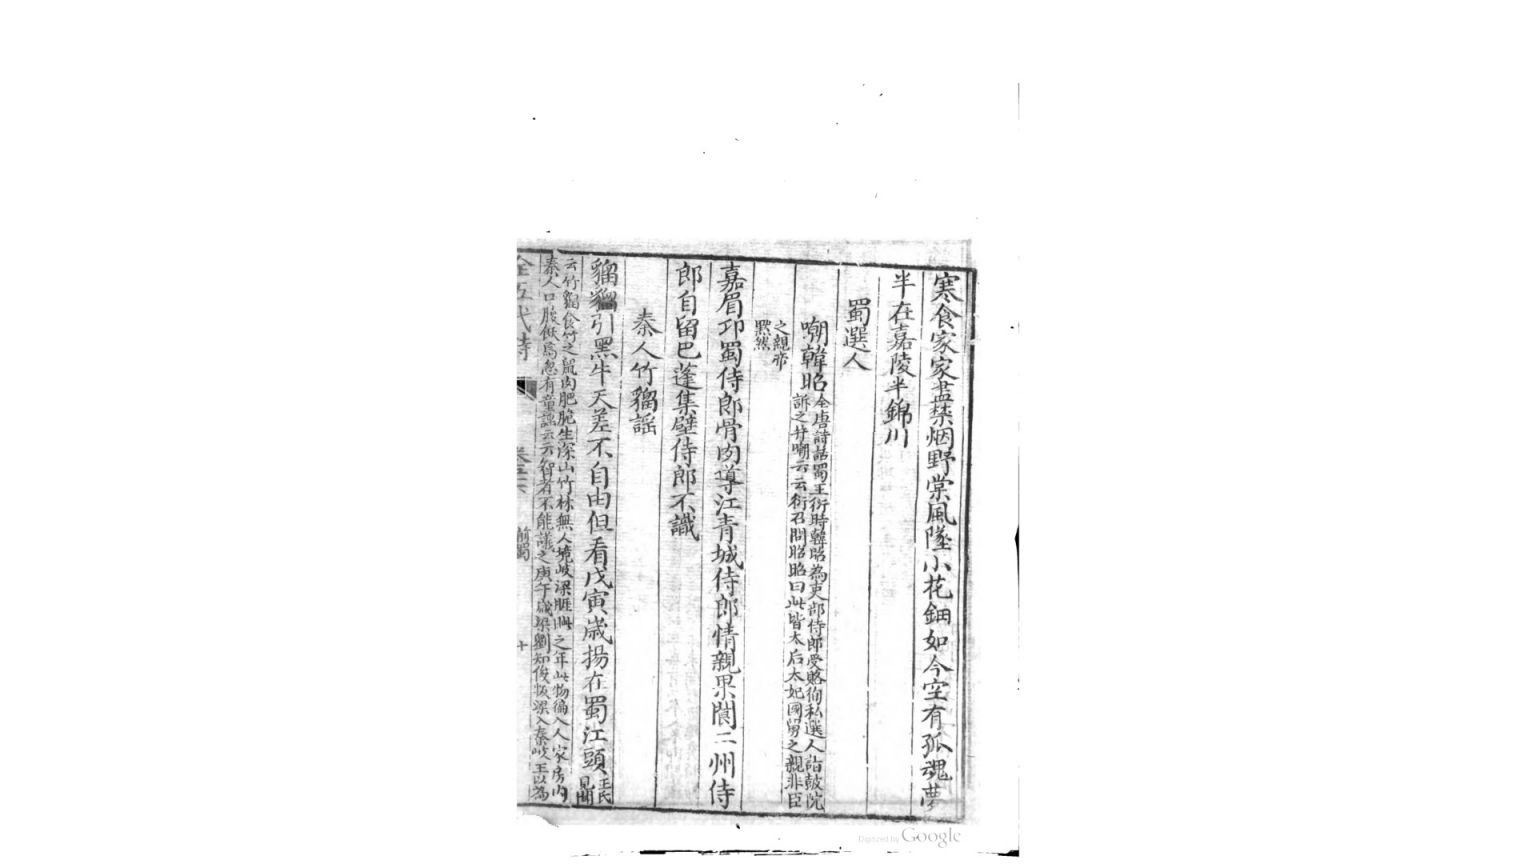 寒食家家盡禁烟野棠風墜小花鈿如今空有孤魂夢
半在嘉陵半錦川
蜀選人
嘲韓昭全唐詩話蜀王衍時韓昭為吏部侍郎受賂徇私選人詣鼓院
訴之并嘲云云衍召問昭昭曰此皆太后太妃國舅之親非臣
之親帝
黙然
嘉眉邛蜀侍郎骨肉導江青城侍郎情親果閬二州侍
郎自留巴蓬集壁侍郎不識
秦人竹䶉謡
䶉䶉引黑牛天差不自由但看戊寅歳揚在蜀江頭王氏
見聞
云竹䶉食竹之鼠肉肥脆生深山竹林無人境岐梁睚眦之年此物徧入人家房内
秦人口腹飫焉忽有童謡云云智者不能議之庚午歳梁劉知俊叛梁入秦岐王以為
全五代詩
前蜀
十
Digitized by Google